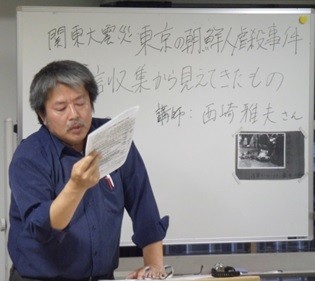 関東大震災 東京の朝鮮人虐殺事件
言収集から見えてきたもの
講師：西崎雅夫さん